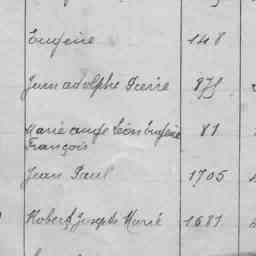 Eugène 148
Jean adolphe Pierre 875
Marie ange Léon Eugène 81
François
Jean Paul 1705
Robert Joseph Marie 1681